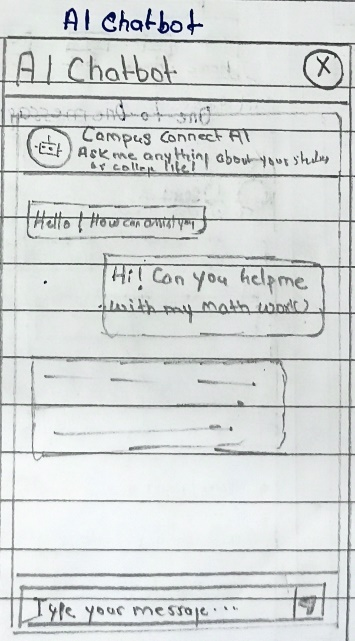 AI Chatbot
AI Chatbot X
Campus Connect AI
Ask me anything about your studies
or college life!
Hello! How can assist you
Hi! Can you help me
with my math work
Type your message...